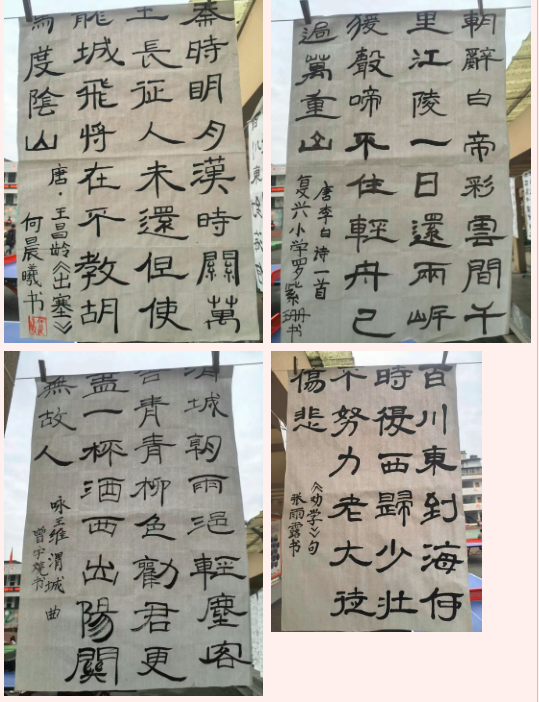 秦時明月漢時關萬
里長征人未還但使
龍城飛將在不教胡
馬度陰山
唐·王昌龄《出塞》
何晨曦书
朝辭白帝彩雲間千
里江陵一日還兩岸
猨聲啼不住輕舟已
過萬重山
唐李白诗一首
复兴小学罗紫珊书
渭城朝雨浥輕塵客
舍青青柳色勸君更
盡一杯酒西出陽關
無故人
咏王维渭城曲
曾宇書
百川東到海何
時復西歸少壯
不努力老大徒
傷悲
《劝学》句
张雨露书